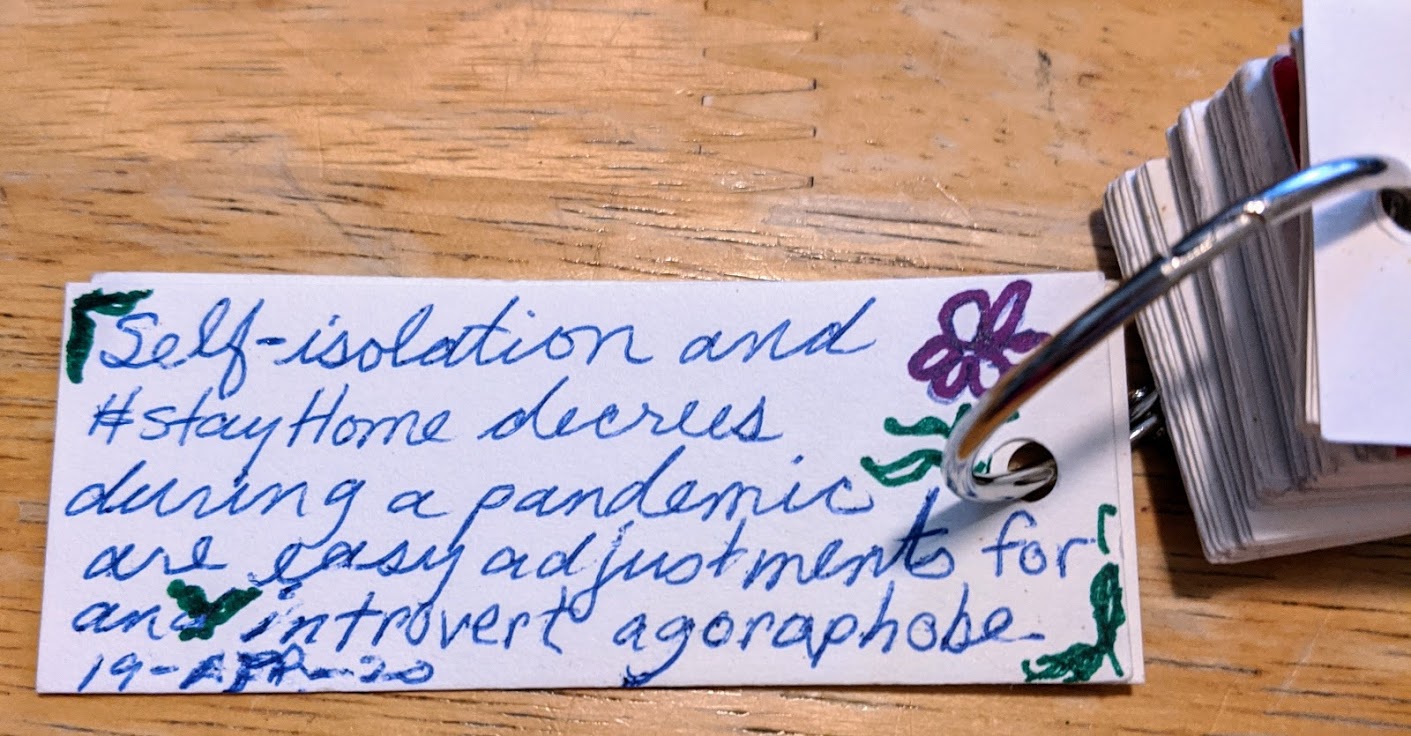 Self-isolation and
#stayHome decrees
during a pandemic
are easy adjustments for
an introvert agoraphobe.
19-APR-20